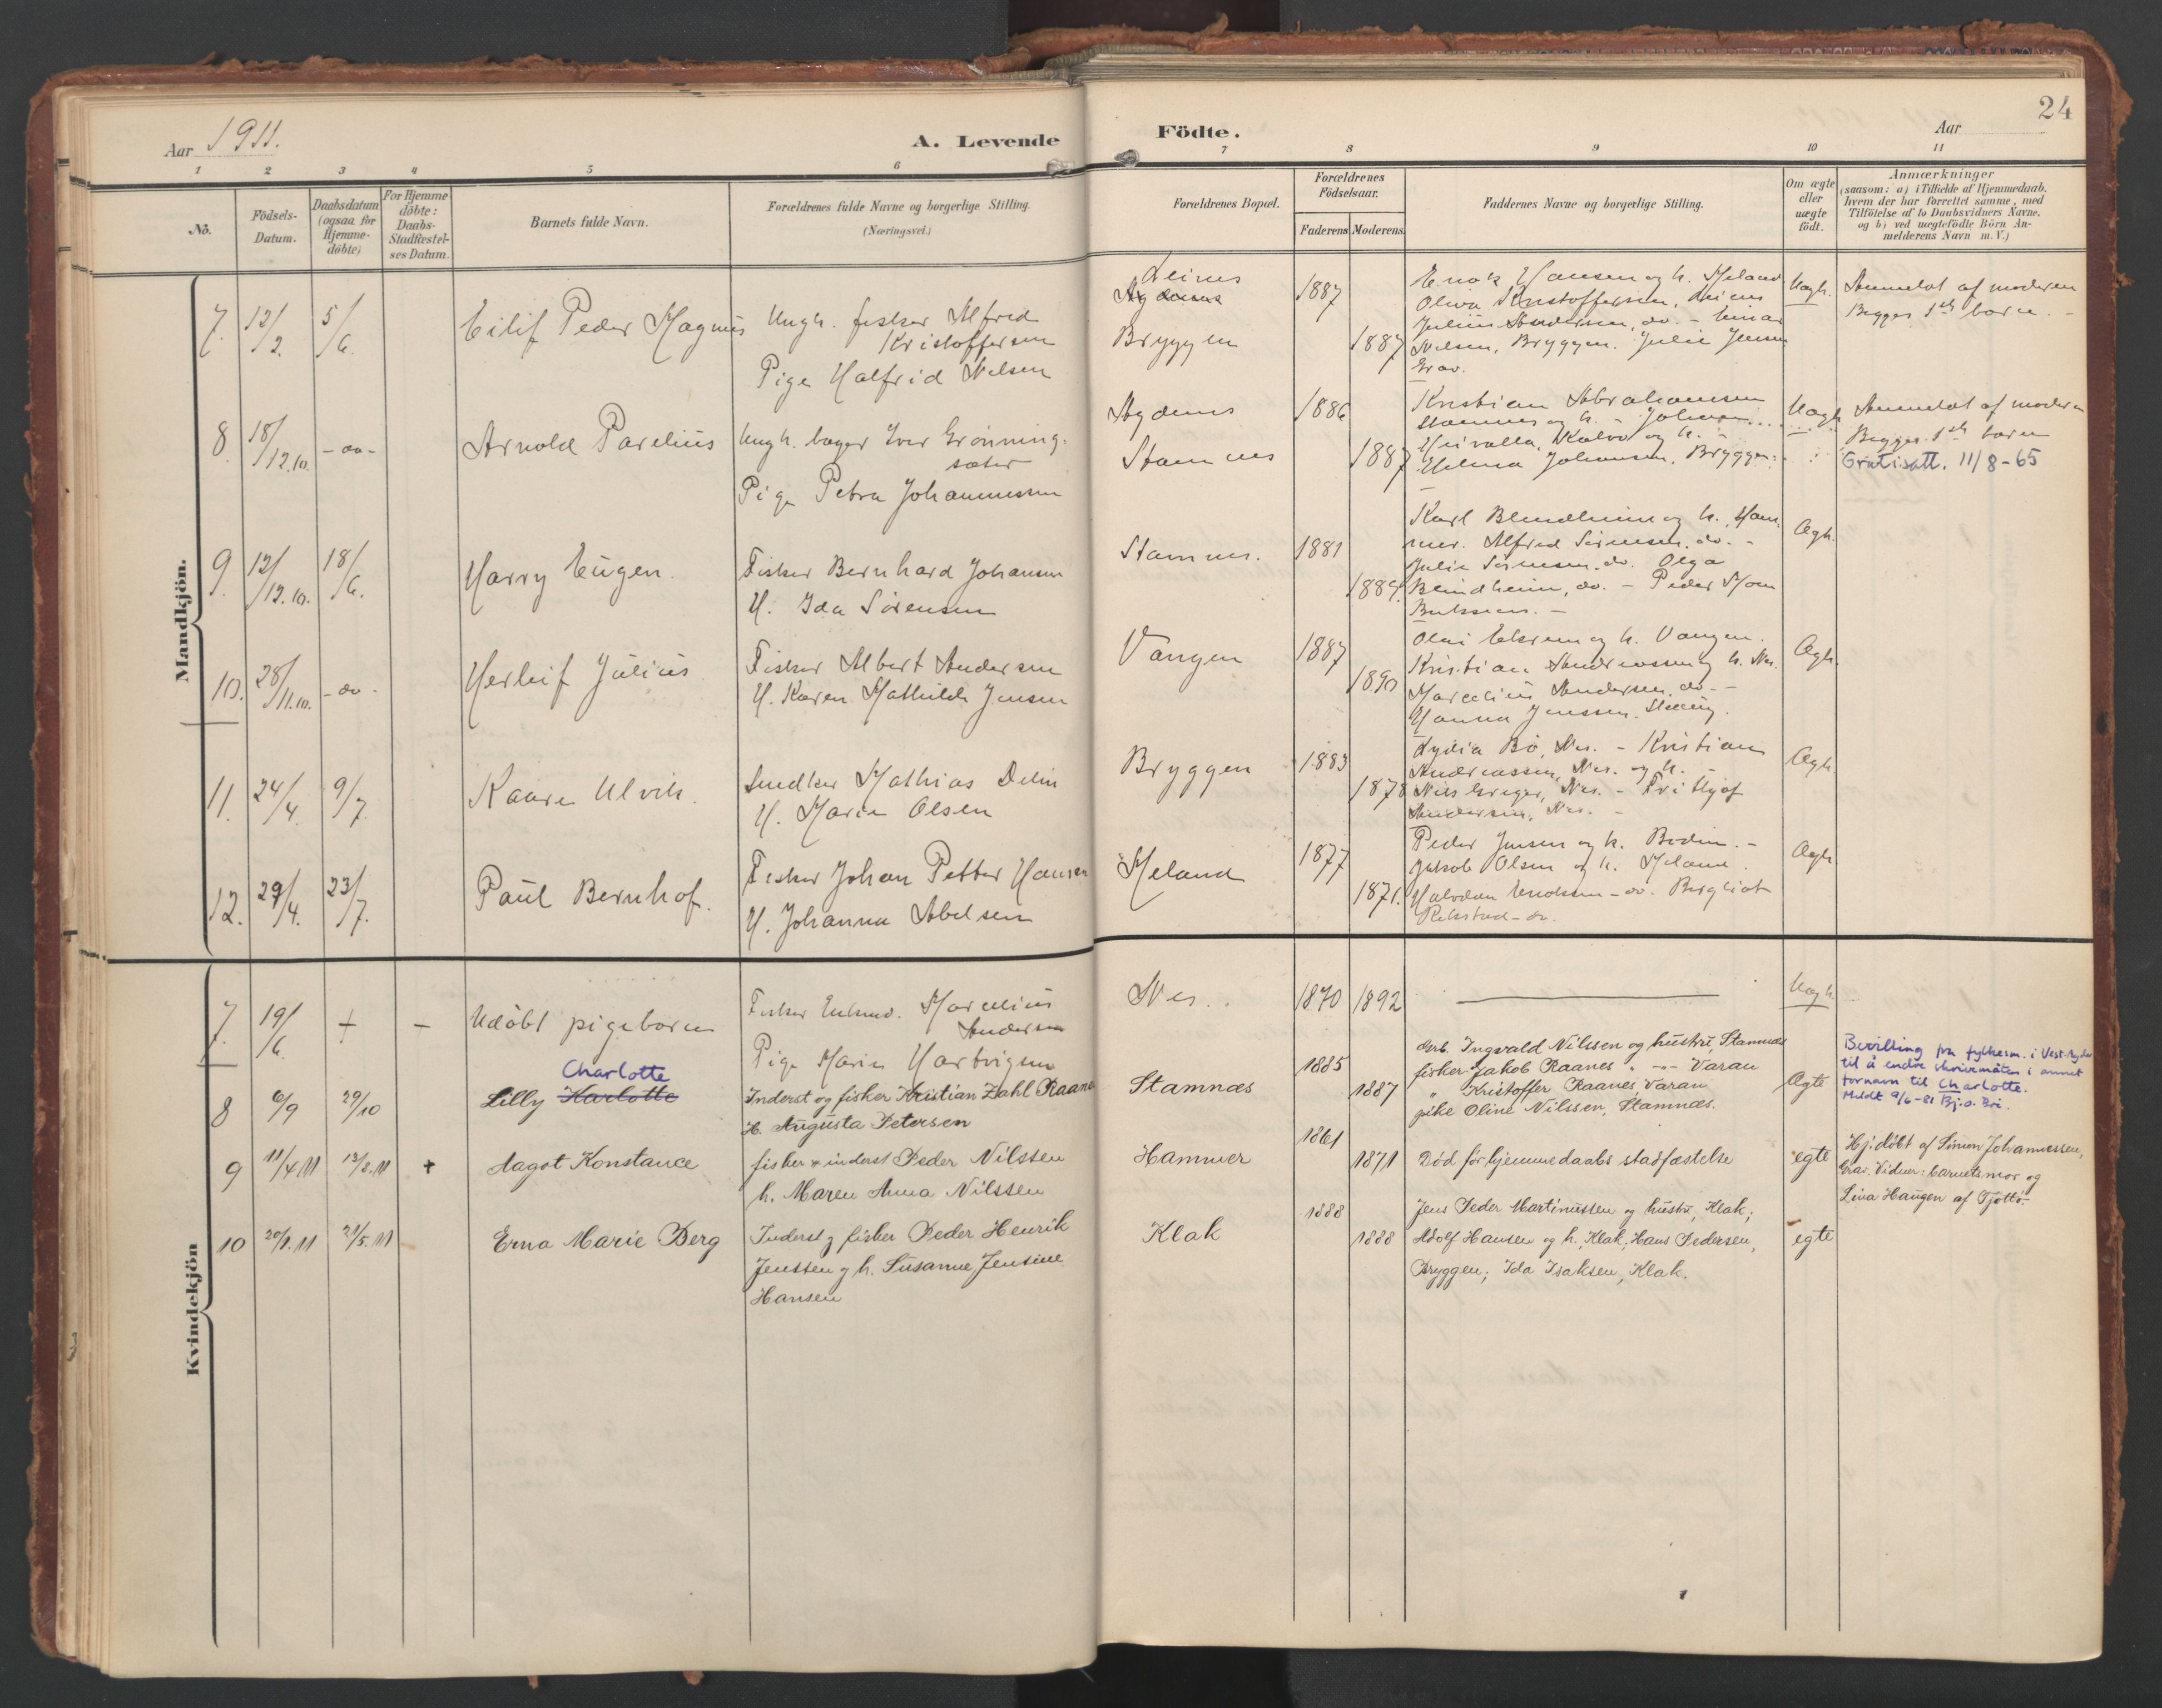 24
Aar 1911.
A. Levende
Födte.
Aar
1 2 3 4 5 6 7 8 9 10 11
No.
Födsels-
Datum.
Daabsdatum
(ogsaa för
Hjemme-
döbte)
For Hjemme
döbte:
Daabs-
Stadfæstel-
ses Datum.
Barnets fulde Navn.
Forældrenes fulde Navne og borgerlige Stilling.
(Næringsvei.)
Forældrenes Bopæl.
Forældrenes
Födselsaar.
Faderens
Moderens.
Faddernes Navne og borgerlige Stilling.
Om ægte
eller
uægte
födt.
Anmærkninger
(saasom: a) i Tilfælde af Hjemmedaab.
hvem der har forrettet samme, med
Tilföielse af to Daabsvidners Navne.
og b) ved uægtefödte Börn An-
melderens Navn m. V.)
Mandkjön.
7. 12/2. 5/6.
Eilif Peder Magnus
Ungk. fisker Alfred
Kristoffersen
Pige Halfrid Nilsen
Leines
Bryggen
1887
1887
Enok Hansen og h. Meland
Oliva Kristoffersen, Leines
Julius Andersen, do. - Einar
Nilsen, Bryggen. Julie Jensen
Grav.
Uægt.
Anmeldt af moderen
Begges 1ste barn. -
8. 18/12.10. - do -
Arnold Parelius
Ungk. bager Iver Grønning-
sæter
Pige Petra Johannessen
Stamnes
1886
1887
Kristian Abrahamsen
Stamnes og h. - Johan
Kalvø og h. -
Helma Johansen, Bryggen.
Uægt.
Anmeldt af moderen
Begges 1ste barn
Gratisatt. 11/8-65
9. 12/12.10. 18/6.
Harry Eugen.
Fisker Bernhard Johansen
H. Ida Sörensen
Stamnes.
1881
1889.
Karl Blindheim og h., Ham-
mer. Alfred Sörensen, do. -
Julie Sörensen, do. Olga
Blindheim, do. - Peder
Ægt.
10. 28/11.10. - do -
Herleif Julius
Fisker Albert Andersen
H. Karen Mathilde Jensen
Vangen
1887
1890
Olai Ekrem og h. Vangen.
Kristian Andreassen og h. Nes.
Marcelius Andersen, do. -
Hanna Jenssen.
Ægt.
11. 24/4. 9/7.
Kaare Ulvik.
Snedker Mathias Delin
H. Marie Olsen
Bryggen
1883
1878
Lydia Bö, Nes. - Kristian
Andreassen, Nes. og h. -
Nils Greger, Nes. - Fritjof
Andersen, Nes. -
Ægt.
12. 29/4. 23/7.
Paul Bernhof.
Fisker Johan Petter Hansen
H. Johanna Abelsen
Meland
1877
1871.
Peder Jensen og h. Bodin. -
Jakob Olsen og h. Meland.
Halvdan Enoksen - do. Bergliot
Rekstad - do.
Ægt.
Kvindekjön
7. 19/6. + -
Udöbt pigebarn
Fisker Enkmd. Marcelius
Andersen
Pige Marie Hartvigsen
Nes.
1870 1892
Uægt.
8 6/9 29/10
Charlotte
Lilly Karlotte
Inderst og fisker Kristian Zahl Raanes
H. Augusta Petersen
Stamnæs
1885
1887
Grb. Ingvald Nilssen og hustru, Stamnæs
fisker Jakob Raanes " -"- Varan
" Kristoffer Raanes, Varan
pike Oline Nilssen, Stamnæs.
Ægte
Bevilling fra fylkesm. i Vest-Agder
til å endre skrivemåten i annet
fornavn til Charlotte.
Meldt 9/6-81 Bj. O. Boi.
9 11/4 11 13/8.11 +
Aagot Konstance
fisker & inderst Peder Nilssen
h. Maren Anna Nilssen
Hammer
1861
1871
Död för hjemmedaabs stadfæstelse
egte
Hj.döbt af Simon Johannessen,
Grav. Vidner: barnets mor og
Lina Haugen af Tjötta.
10 20/1.11 21/5.11
Erna Marie Berg
Inderst og fisker Peder Henrik
Jenssen og h. Susanne Jensine
Hansen
Klak
1888
1888
Jens Peder Martinussen og hustru, Klak;
Adolf Hansen og h., Klak; Hans Pedersen,
Bryggen; Ida Isaksen, Klak.
egte